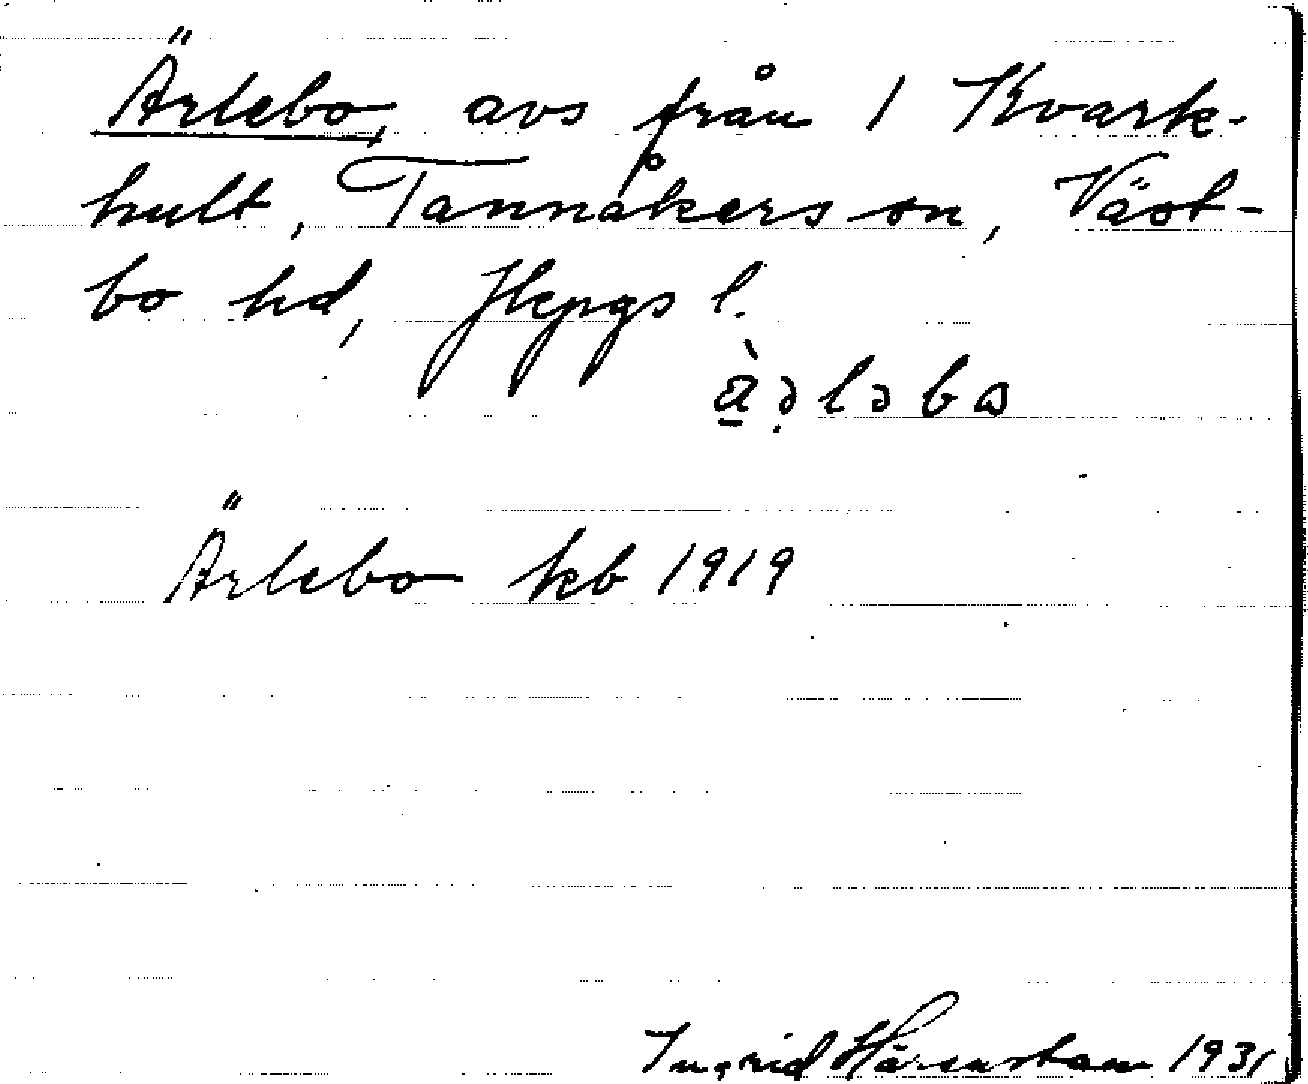 Ärlebo, avs från 1 Kvark-
hult, Tannåkers sn, Väst-
bo hd, Jkpgs l.
Ärlebo kb 1919
Ingrid Härenstam 1931